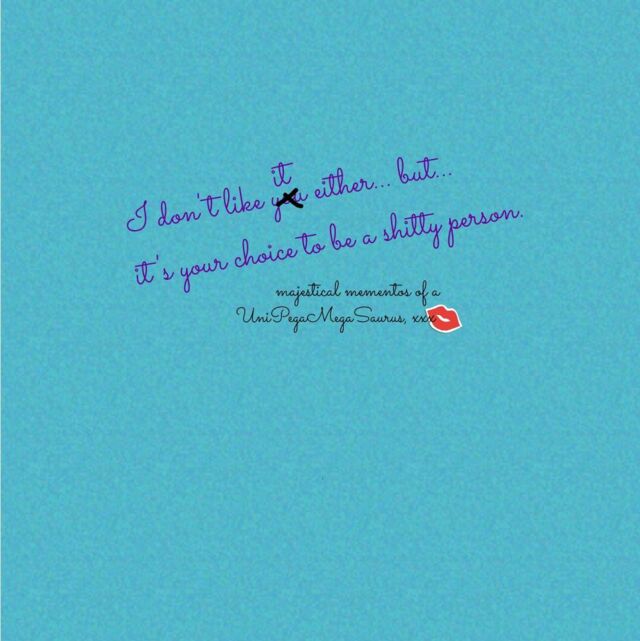 it
I don't like you either... but...
it's your choice to be a shitty person.
majestical mementos of a
UniPegaMegaSaurus, xxx